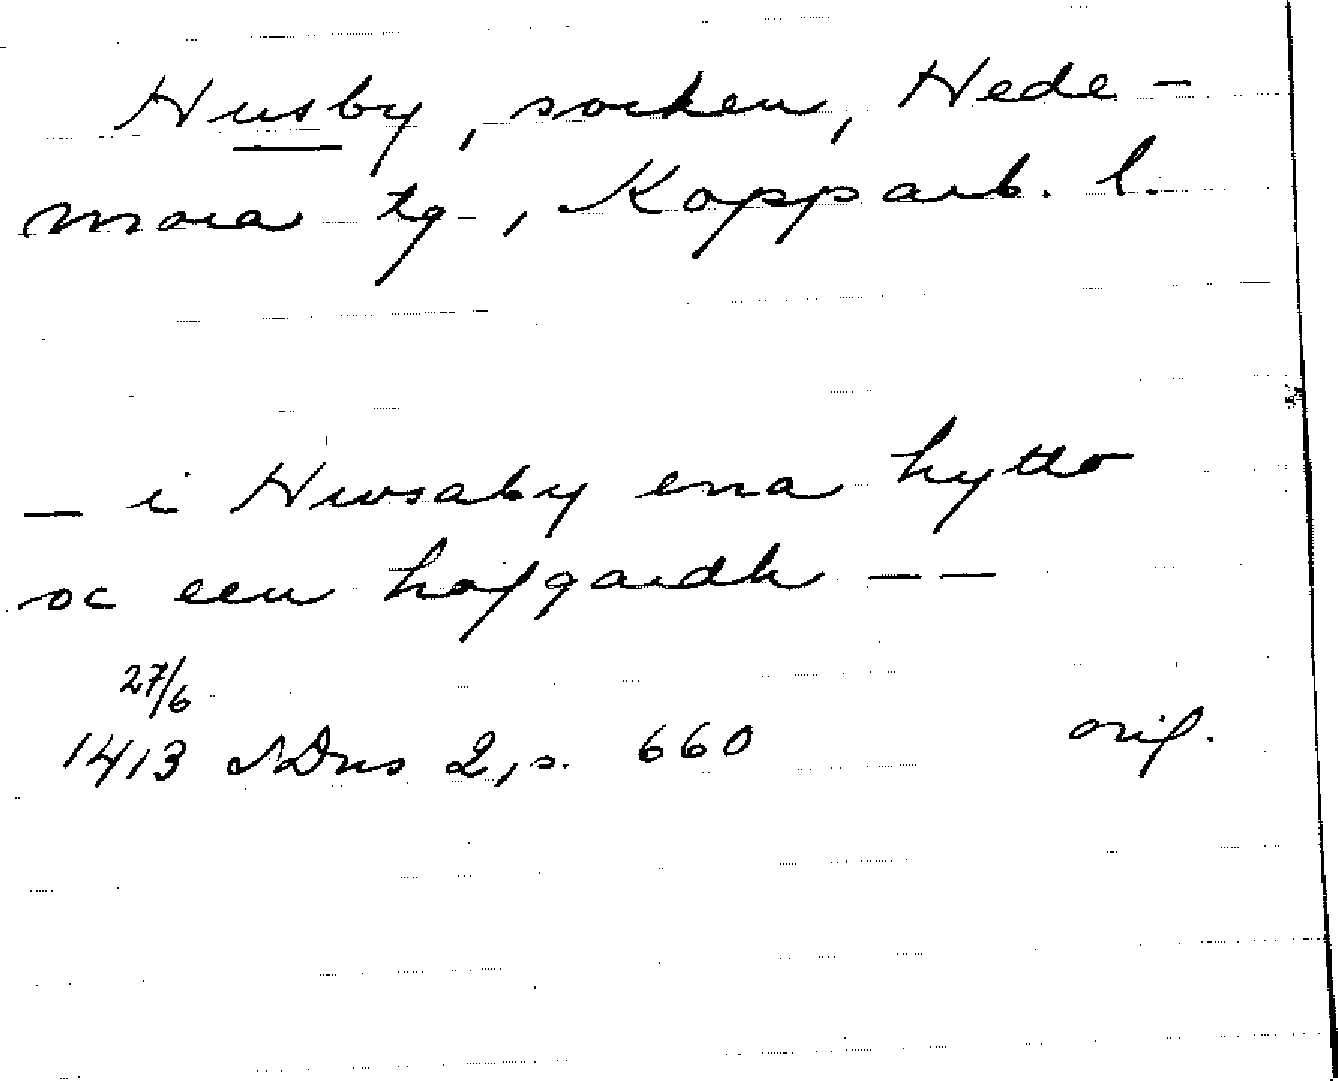 Husby, socken, Hede-
mora tg, Kopparb. l.
— i Hwsaby ena hytto
oc een hafgardh — —
27/6
1413 SDns 2, s. 660 orig.